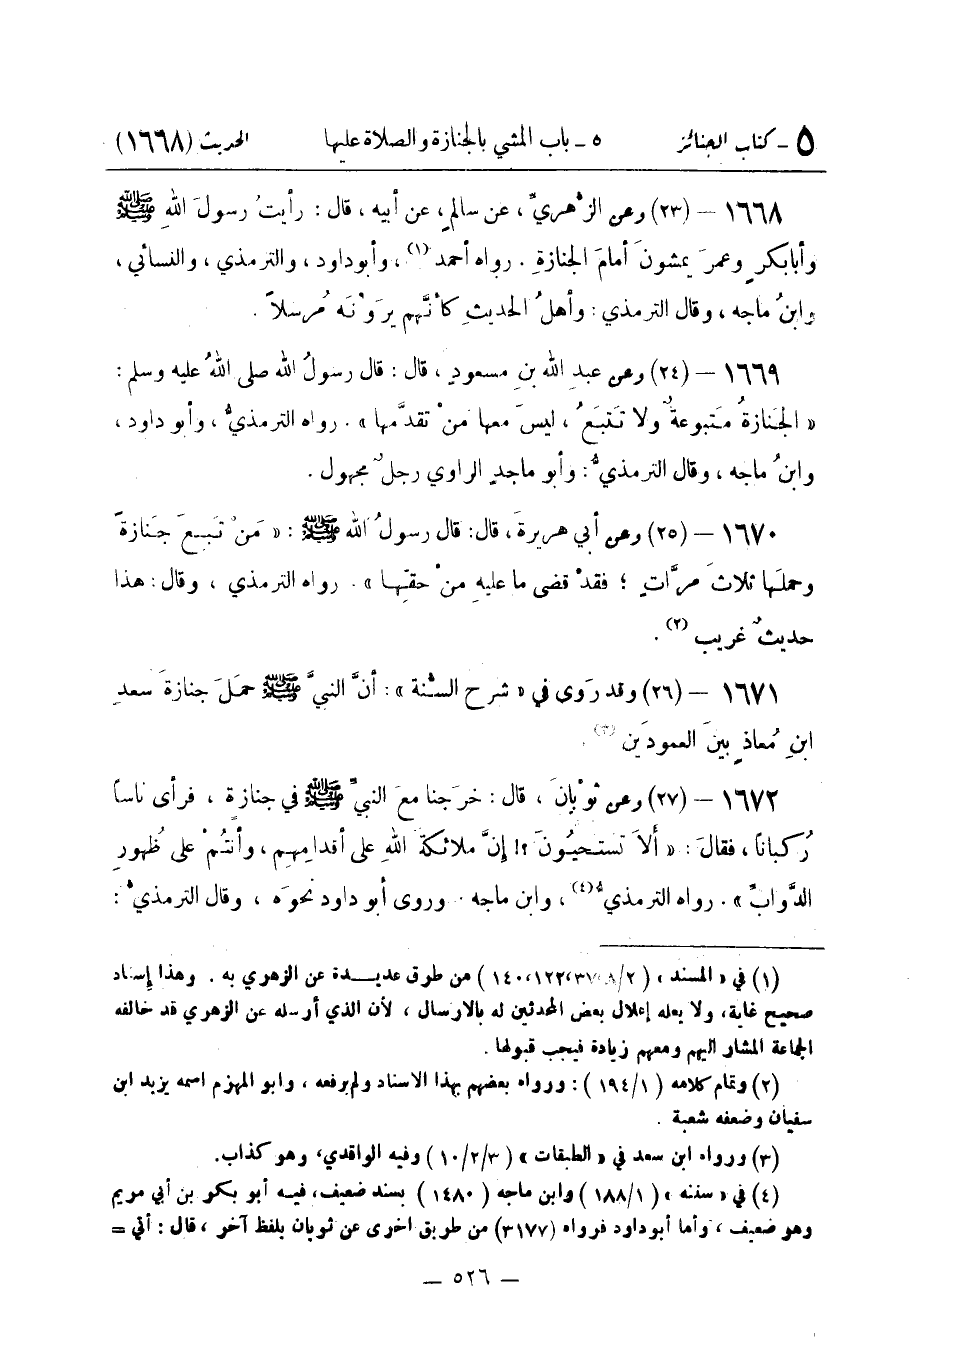 ٥ - كتاب الجنائز ٥ - باب المشي بالجنازة والصلاة عليها الحديث (١٦٦٨)
١٦٦٨ – (٢٣) وعن الزُّهريِّ، عن سالمٍ، عن أبيه، قال: رأيتُ رسولَ اللهِ ﷺ
وأبابكرٍ وعمرَ يمشونَ أمامَ الجنازةِ. رواه أحمد(١)، وأبوداود، والترمذي، والنسائي،
وابنُ ماجه، وقال الترمذي: وأهلُ الحديثِ كأنَّهم يرَوْنَه مُرسلاً.
١٦٦٩ – (٢٤) وعن عبدِ الله بنِ مسعودٍ، قال: قال رسولُ الله صلى اللهُ عليه وسلم:
« الجَنازةُ مَتبوعةٌ ولا تَتبَعُ، ليسَ معها مَنْ تقدَّمها ». رواه الترمذيُّ، وأبو داود،
وابنُ ماجه، وقال الترمذيُّ: وأبو ماجدٍ الراوي رجلٌ مجهول.
١٦٧٠ – (٢٥) وعن أبي هريرةَ، قال: قال رسولُ الله ﷺ: « مَنْ تَبِعَ جَنازةً
وحملَها ثلاثَ مرَّاتٍ؛ فقدْ قضى ما عليهِ مِنْ حقِّها ». رواه الترمذي، وقال: هذا
حديثٌ غريب(٢).
١٦٧١ – (٢٦) وقد رَوى في « شرح السُّنة »: أنَّ النبيَّ ﷺ حمَلَ جنازةَ سعدِ
ابنِ مُعاذٍ بينَ العمودَين(٣).
١٦٧٢ – (٢٧) وعن ثَوْبانَ، قال: خرَجنا معَ النبيِّ ﷺ في جنازةٍ، فرأى ناساً
رُكباناً، فقالَ: « ألاَ تستحيُونَ؟! إنَّ ملائكةَ اللهِ على أقدامِهم، وأنتُمْ على ظُهورِ
الدَّوابِّ ». رواه الترمذيُّ(٤)، وابن ماجه. وروى أبو داود نحوَه، وقال الترمذيُّ:
(١) في « المسند » (٨/٢، ٣٧، ١٢٢، ١٤٠) من طرق عديدة عن الزهري به. وهذا إسناد
صحيح غاية، ولا يعله إعلال بعض المحدثين له بالارسال، لأن الذي أرسله عن الزهري قد خالفه
الجماعة المشار اليهم ومعهم زيادة فيجب قبولها.
(٢) وتمام كلامه (١٩٤/١): ورواه بعضهم بهذا الاسناد ولم يرفعه، وابو المهزم اسمه يزيد ابن
سفيان وضعفه شعبة.
(٣) ورواه ابن سعد في « الطبقات » (١٠/٢/٣) وفيه الواقدي، وهو كذاب.
(٤) في « سننه » (١٨٨/١) وابن ماجه (١٤٨٠) بسند ضعيف، فيه أبو بكر بن أبي مريم
وهو ضعيف، وأما أبوداود فرواه (٣١٧٧) من طريق اخرى عن ثوبان بلفظ آخر، قال: أتي =
— ٥٢٦ —